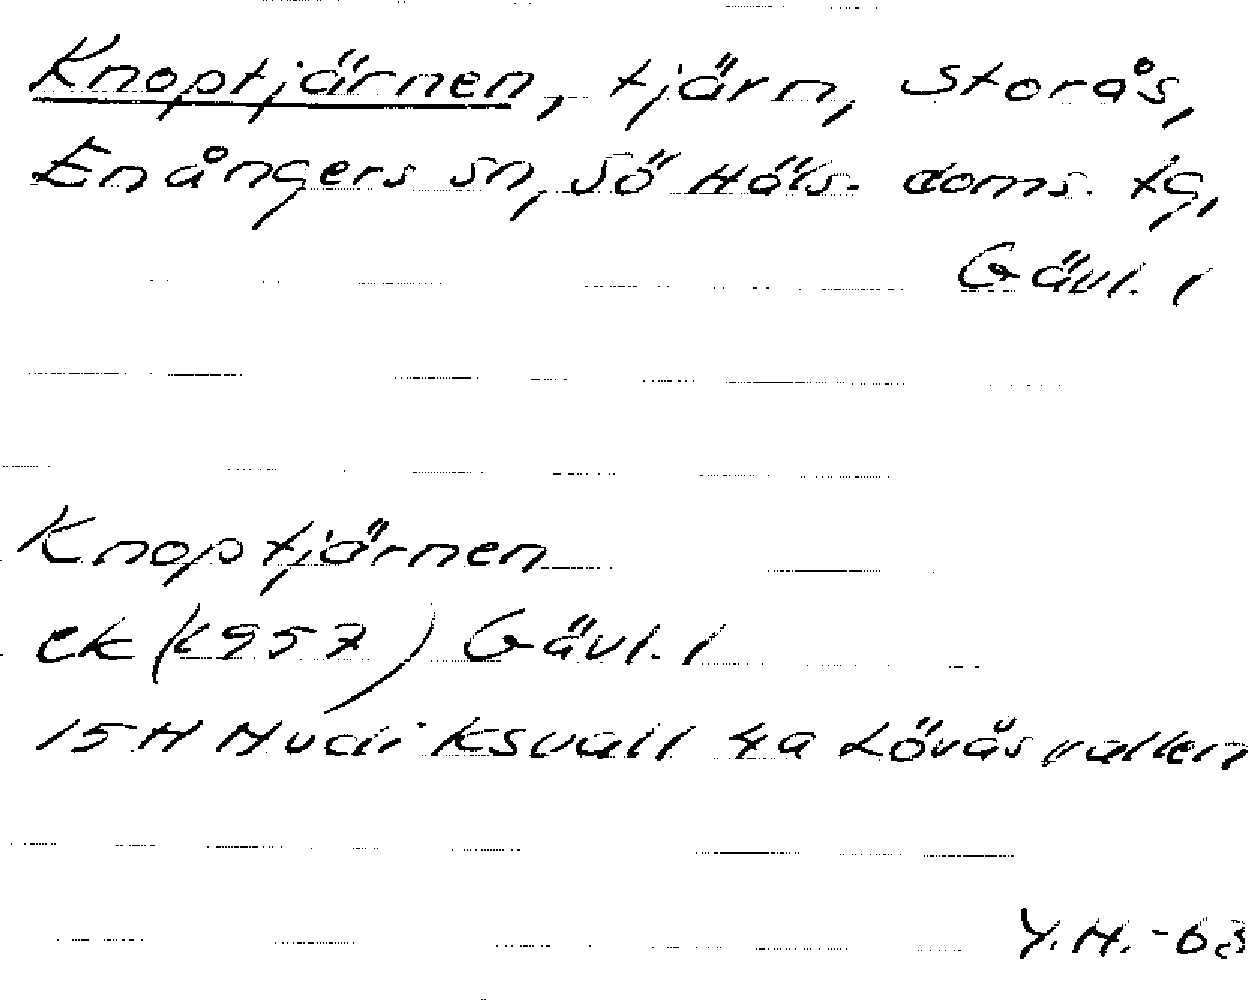 Knoptjärnen, tjärn, Storås,
Enångers sn, Sö Häls. doms. tg,
Gävl. l
Knoptjärnen
ek (1957) Gävl. l
15H Hudiksvall 4a Lövåsvallen
Y.H. -63